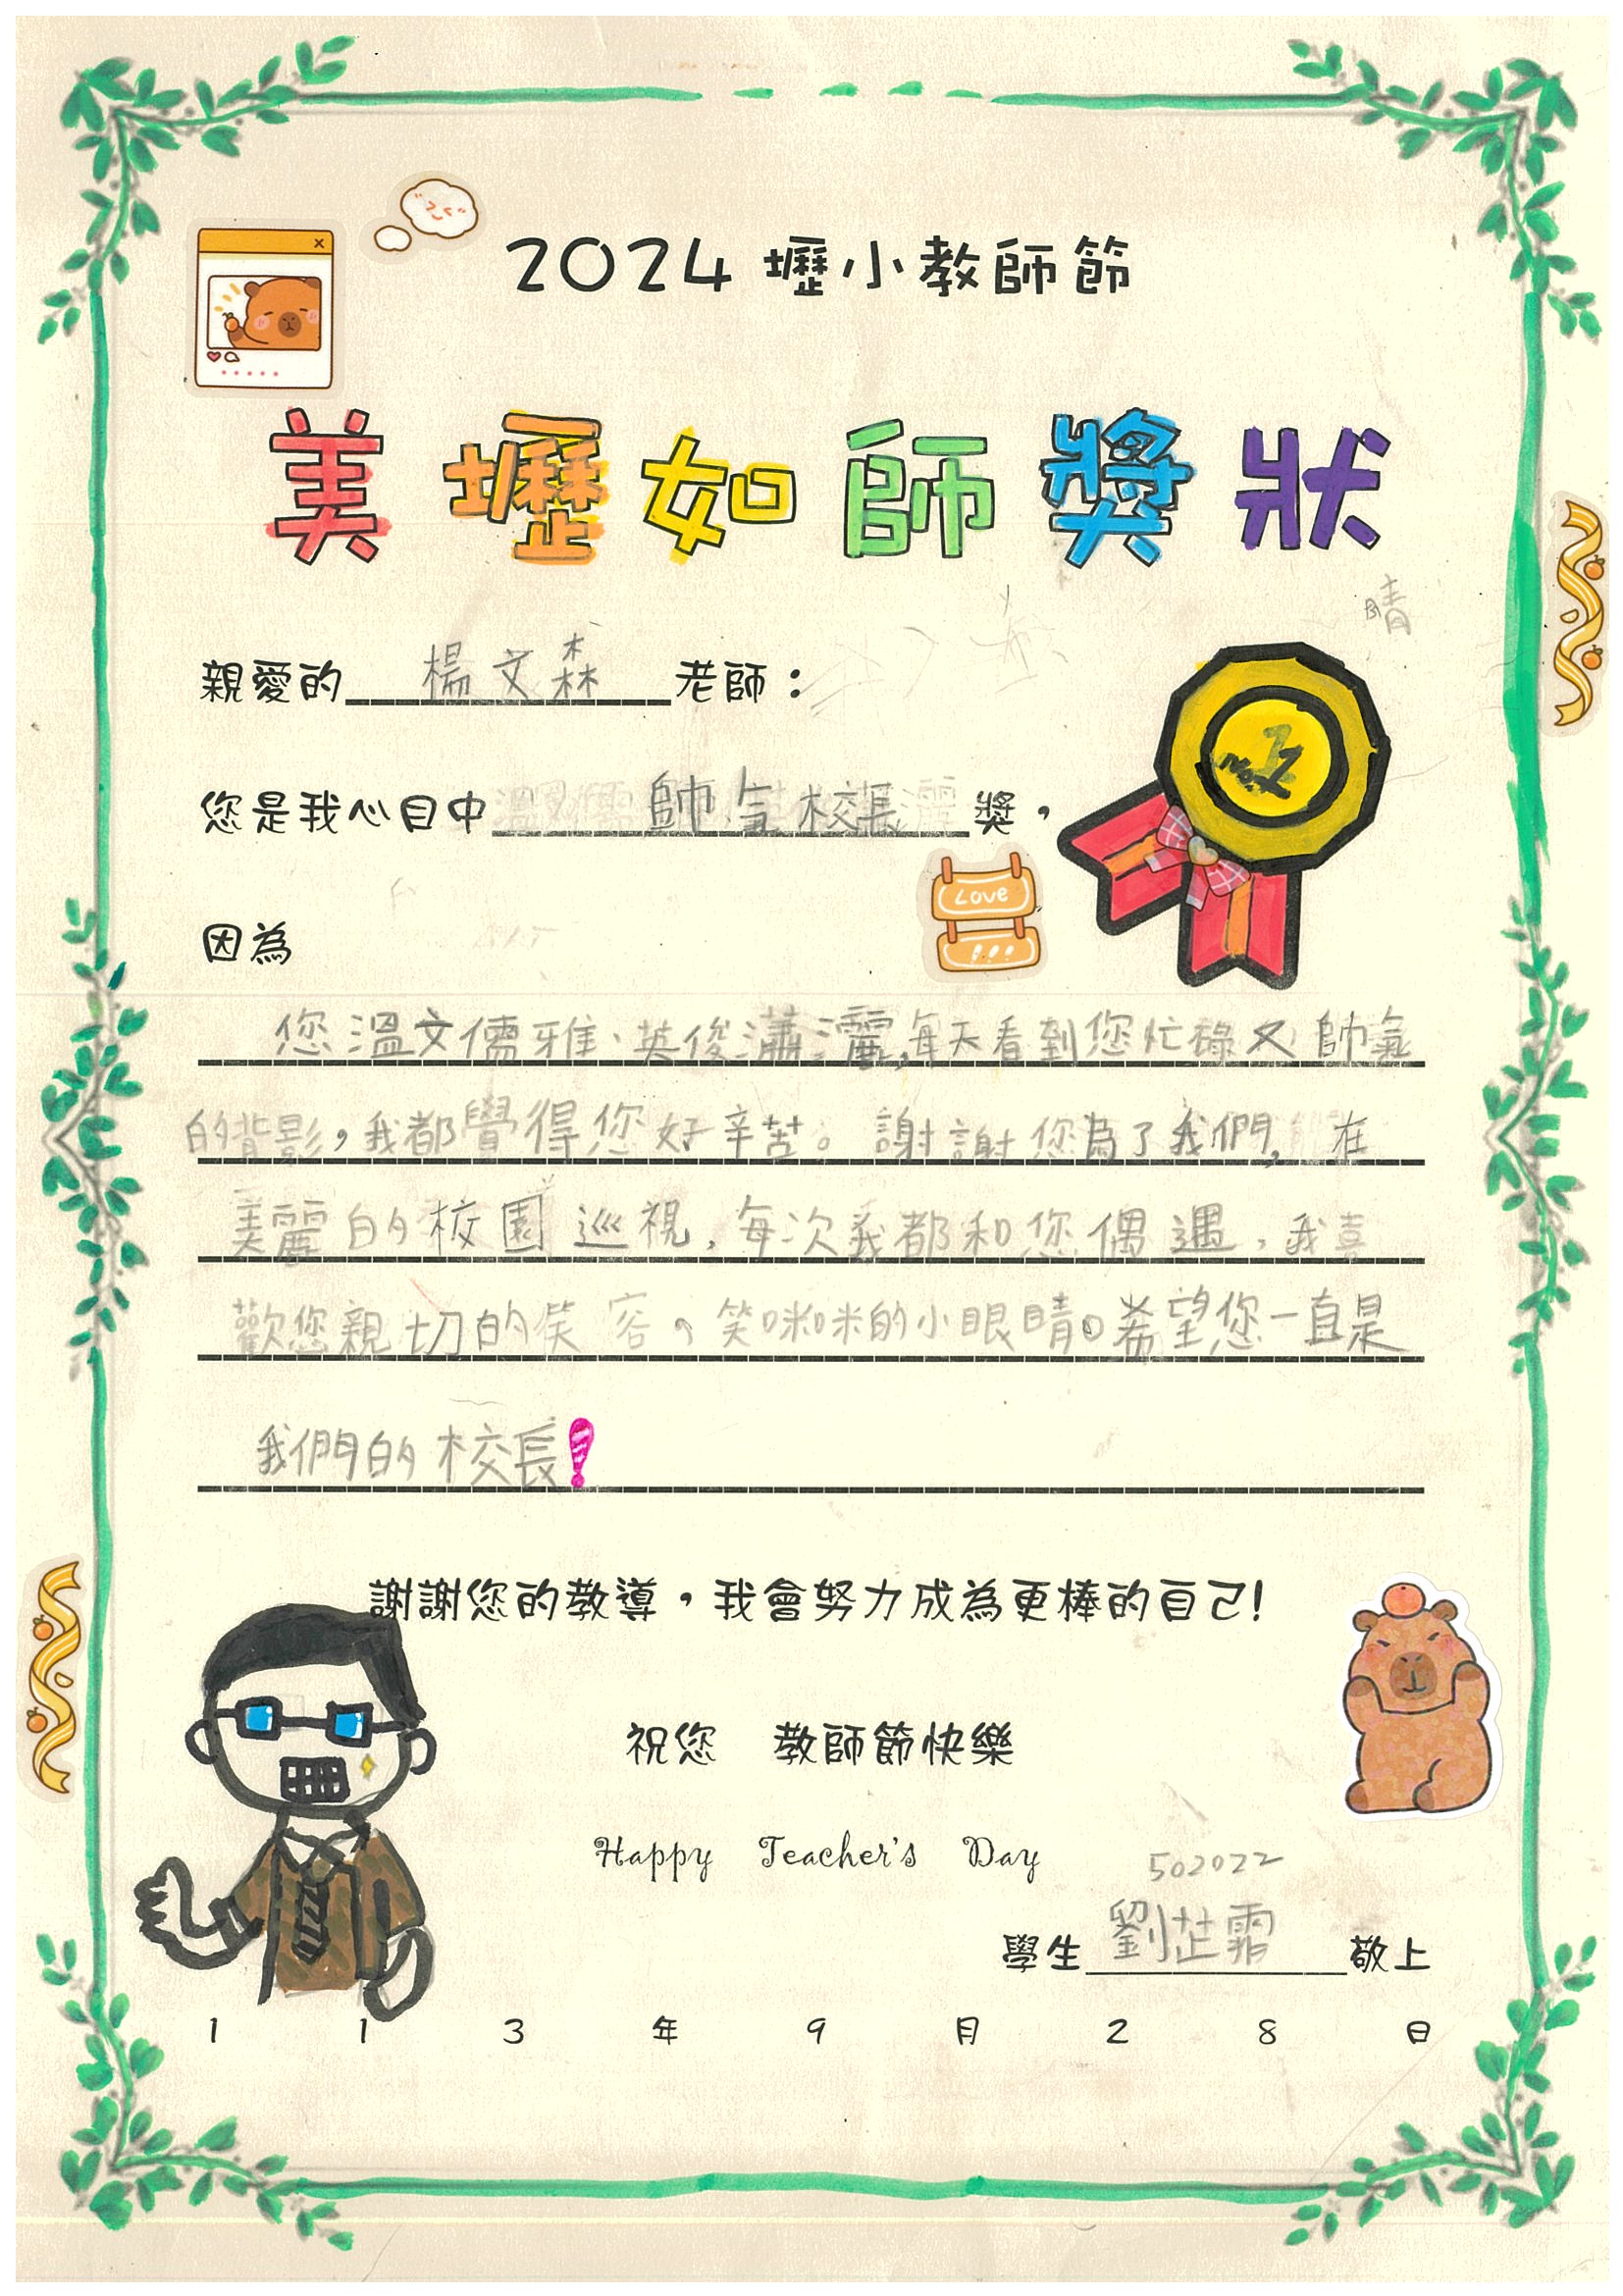 2024 壢小教師節
美壢如師獎狀
晴
親愛的 楊文森 老師：
您是我心目中 帥氣校長 獎，
No.1
Love
!!!
因為
您溫文儒雅、英俊瀟灑，每天看到您忙碌又帥氣
的背影，我都覺得您好辛苦。謝謝您為了我們，在
美麗的校園巡視，每次我都和您偶遇，我喜
歡您親切的笑容，笑咪咪的小眼睛。希望您一直是
我們的校長！
謝謝您的教導，我會努力成為更棒的自己!
祝您 教師節快樂
Happy Teacher's Day
502022
學生 劉芷霏 敬上
1 1 3 年 9 月 2 8 日